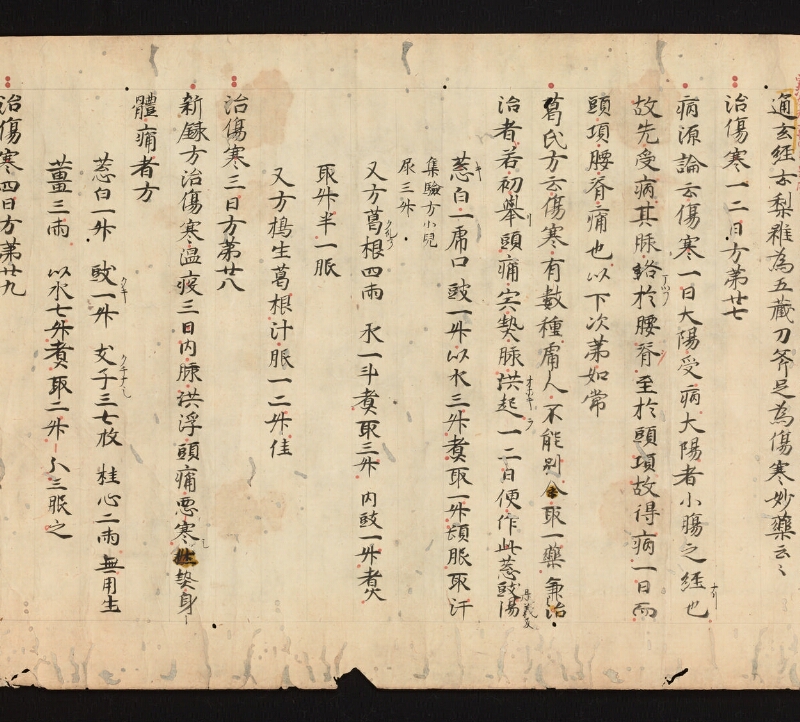 通玄経云梨雖為五蔵刀斧足為傷寒妙藥云〻
治傷寒一二日方第廿七
病源論云傷寒一日大陽受病大陽者小腸之経也
故先受病其脉絡於腰脊至於頭項故得病一日而
頭項腰脊痛也以下次第如常
葛氏方云傷寒有數種庸人不能別今取一藥兼治
治者若初舉頭痛宍熱脉洪起一二日便作此葱豉湯
葱白一虎口 豉一升以水三升煮取一升頓服取汗
集驗方小兒
尿三升
又方葛根四兩 水一斗煮取三升 内豉一升煮
取升半一服
又方搗生葛根汁服一二升佳
治傷寒三日方第廿八
新錄方治傷寒温疫三日内脉洪浮頭痛悪寒熱身
體痛者方
葱白一升 豉一升 支子三七枚 桂心二兩 無用生
薑三兩 以水七升煮取二升 三服之
治傷寒四日方第廿九